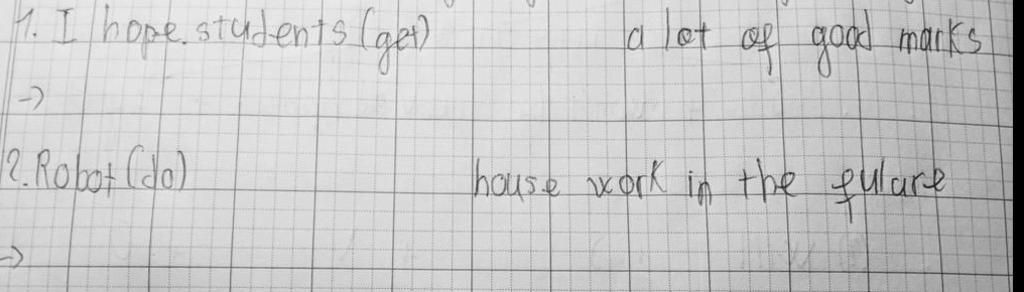 1. I hope students (get) a lot of good marks
→
2. Robot (do) house work in the fulare
→